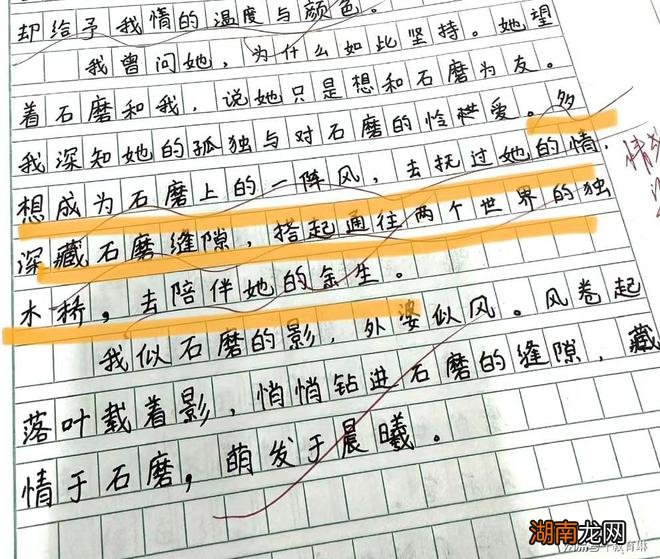 却给予我情的温度与颜色。
我曾问她，为什么如此坚持。她望
着石磨和我，说她只是想和石磨为友。
我深知她的孤独与对石磨的怜爱。多
想成为石磨上的一阵风，去抚过她的情，
深藏石磨缝隙，搭起通往两个世界的独
木桥，去陪伴她的余生。
我似石磨的影，外婆似风。风卷起
落叶载着影，悄悄钻进石磨的缝隙，藏
情于石磨，萌发于晨曦。
情
湖南龙网